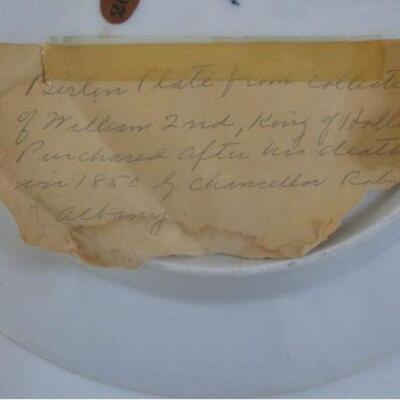 Berlin Plate from collect
of William 2nd, King of Holl
Purchased after his death
in 1850 by Chancellor
of Albany